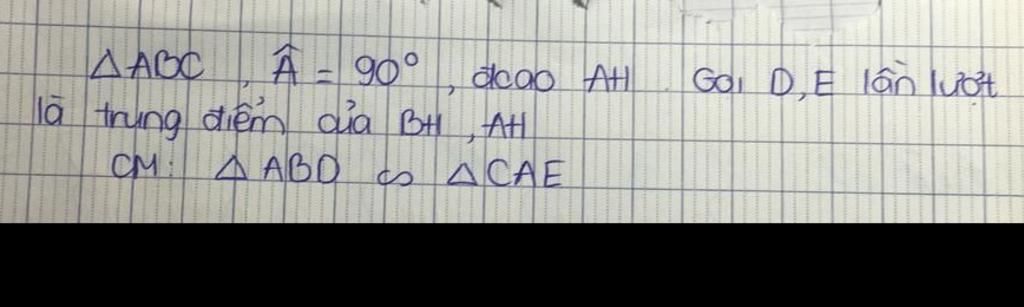 △ABC, Â = 90°, đcao AH. Gọi D, E lần lượt
là trung điểm của BH, AH
CM: △ABD ∽ △CAE